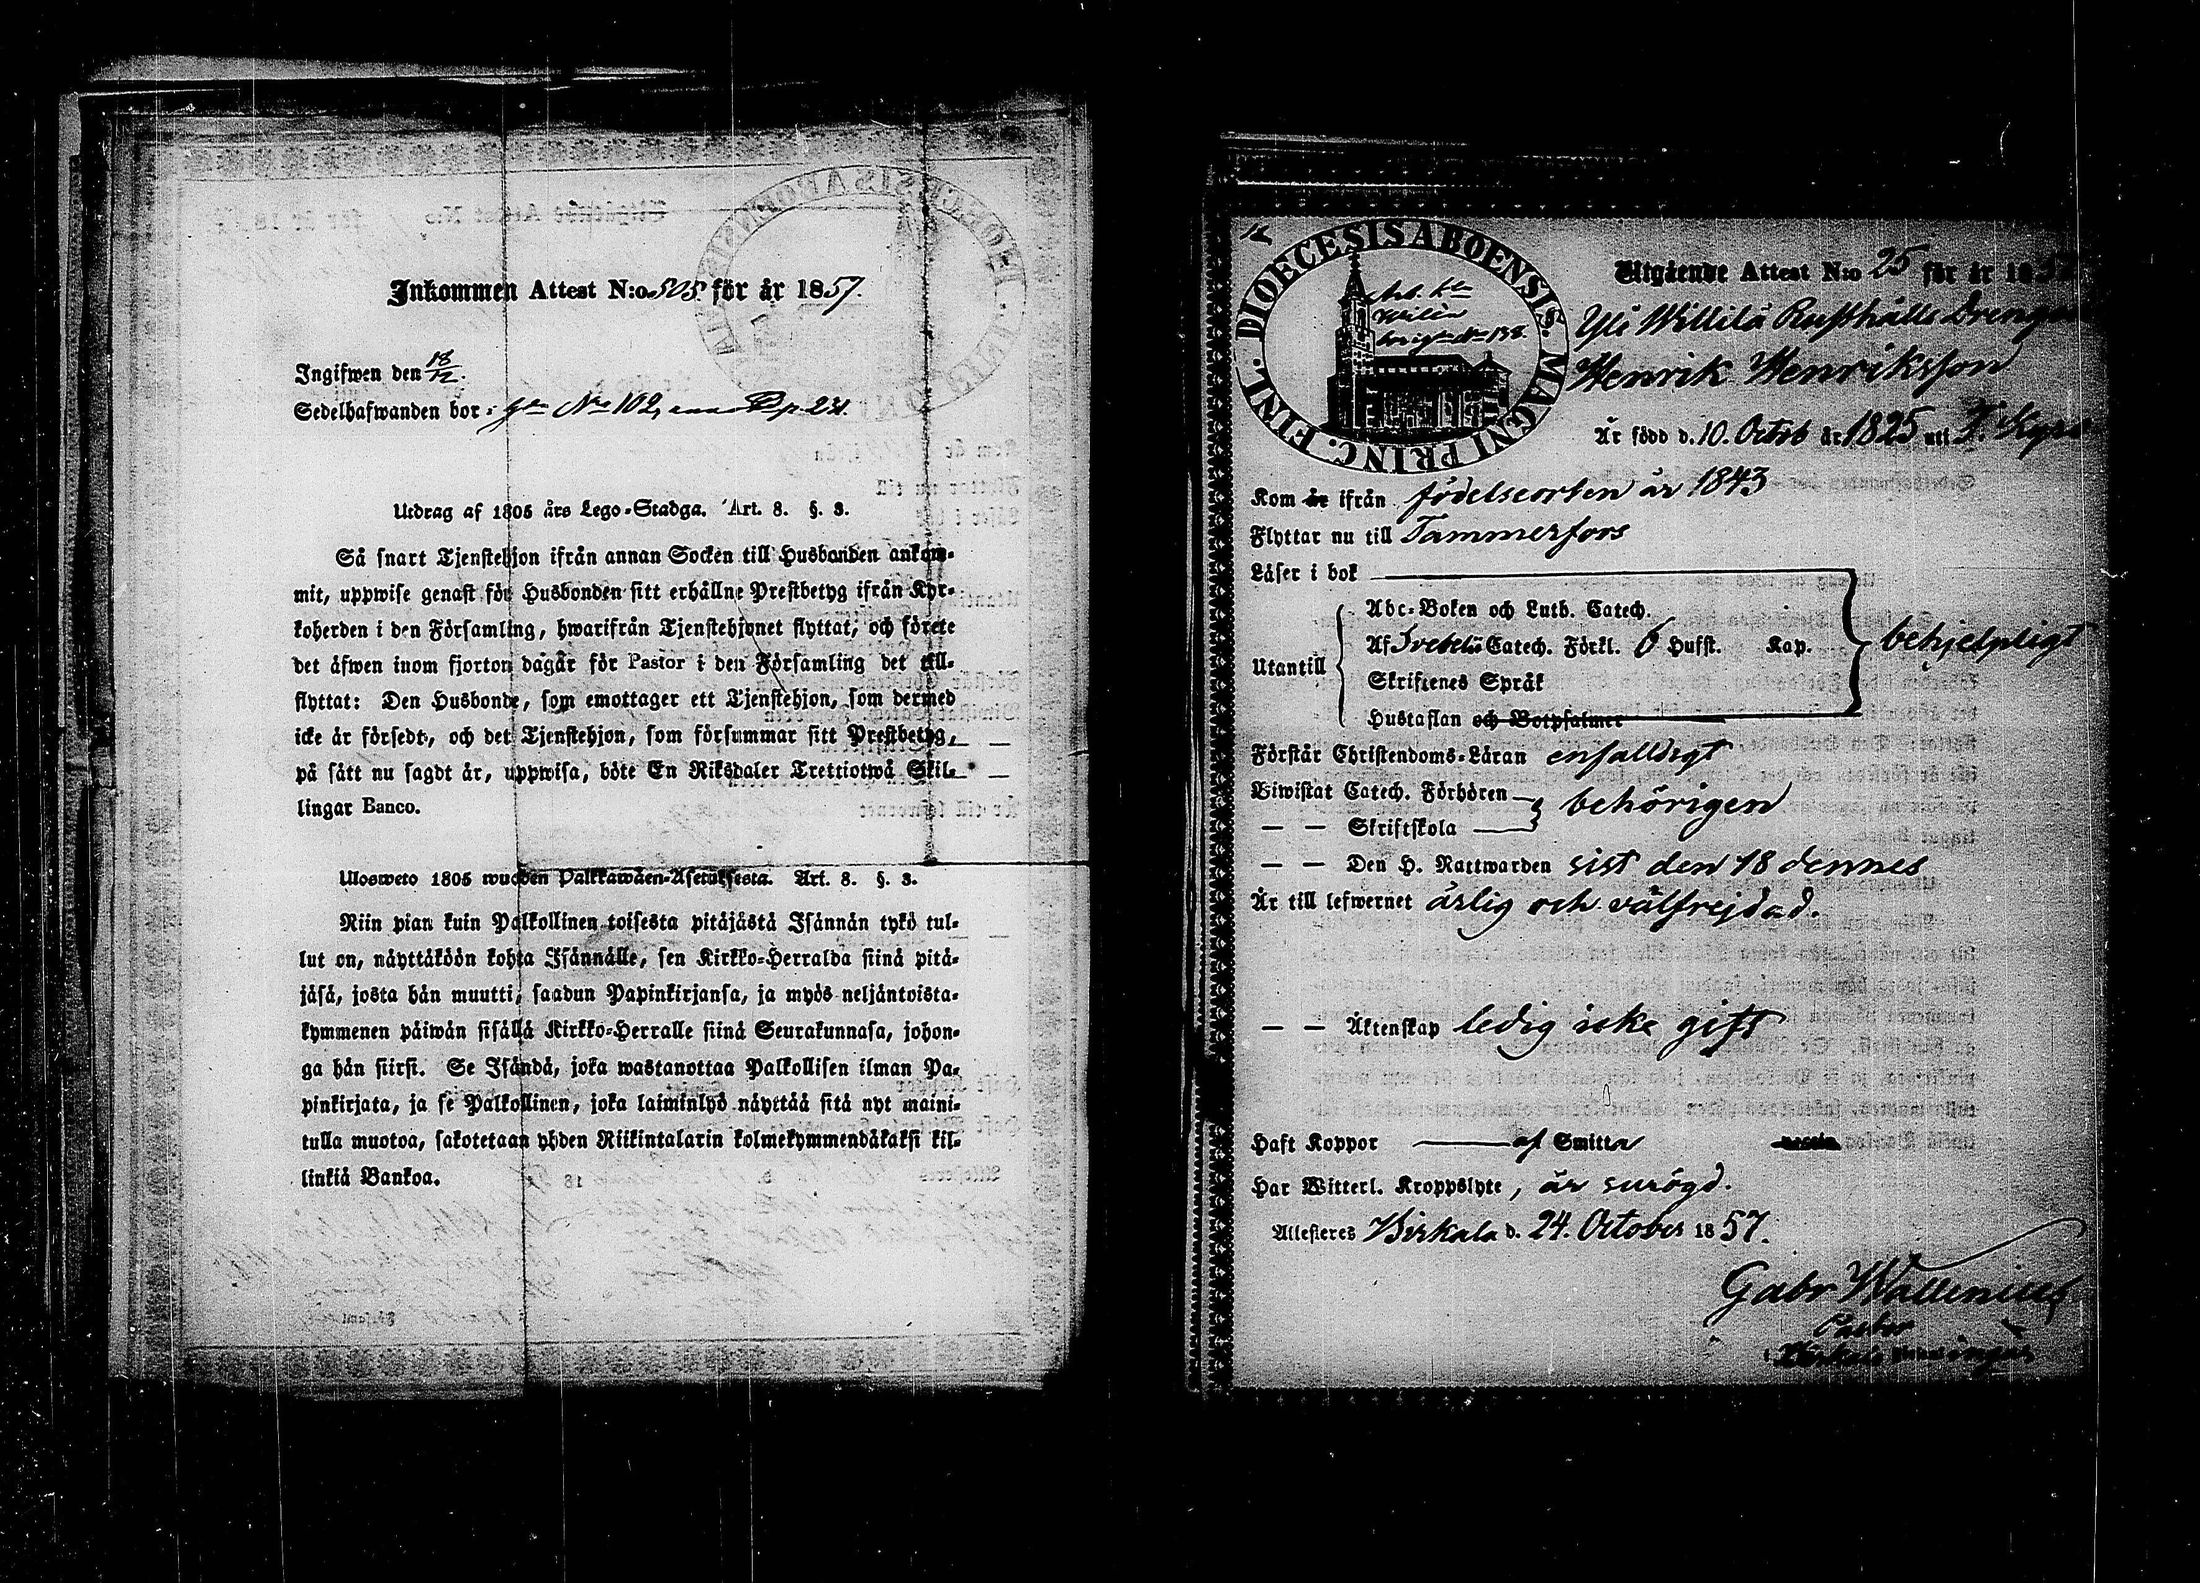 Inkommen Attest N:o 505. för år 1857.
Ingifwen den 18/12.
Sedelhafwanden bor: gn No 102, p. 231.
Utdrag af 1805 års Lego-Stadga. Art. 8. §. 3.
Så snart Tjenstehjon ifrån annan Socken till Husbonden ankom-
mit, uppwise genast för Husbonden sitt erhållne Prestbetyg ifrån Kyr-
koherden i den Församling, hwarifrån Tjenstehjonet flyttat, och förete
det äfwen inom fjorton dagar för Pastor i den Församling det till-
flyttat: Den Husbonde, som emottager ett Tjenstehjon, som dermed
icke är försedt, och det Tjenstehjon, som försummar sitt Prestbetyg,
på sätt nu sagdt är, uppwisa, böte En Riksdaler Trettiotwå Skil-
lingar Banco.
Ulosweto 1805 wuoden Palkkawäen-Asetuksesta. Art. 8. §. 3.
Niin pian kuin Palkollinen toisesta pitäjästä Isännän tykö tul-
lut on, näyttäköön kohta Isännälle, sen Kirkko-Herralda siinä pitä-
jäsä, josta hän muutti, saadun Papinkirjansa, ja myös neljäntoista-
kymmenen päiwän sisällä Kirkko-Herralle siinä Seurakunnasa, johon-
ga hän siirsi. Se Isändä, joka wastanottaa Palkollisen ilman Pa-
pinkirjata, ja se Palkollinen, joka laiminlyö näyttää sitä nyt maini-
tulla muotoa, sakotetaan yhden Riikintalarin kolmekymmendäkaksi kil-
linkiä Bankoa.
DIOECESIS ABOENSIS MAGNI PRINC. FINL.
Utgående Attest N:o 25 för år 1857
Yli Willilä Rusthålls Drengen
Henrik Henriksson
Är född d. 10. Octob år 1825 uti T. Kyro
Kom år ifrån födelseorten år 1843
Flyttar nu till Tammerfors
Läser i bok
Utantill
Abc-Boken och Luth. Catech.
Af Svebelii Catech. Förkl. 6 Hufst. Kap.
Skriftenes Språk
Hustaflan och Botpsalmer
behjelpligt
Förstår Christendoms-Läran enfalldigt
Biwistat Catech. Förhören
— — Skriftskola
behörigen
— — Den H. Nattwarden sist den 18 dennes
Är till lefwernet ärlig och välfrejdad.
— — Äktenskap ledig icke gift
Haft Koppor — af Smitta
Har Witterl. Kroppslyte, är surögd.
Attesteres Birkala d. 24. October 1857.
Gabr Wallenius
Pastor